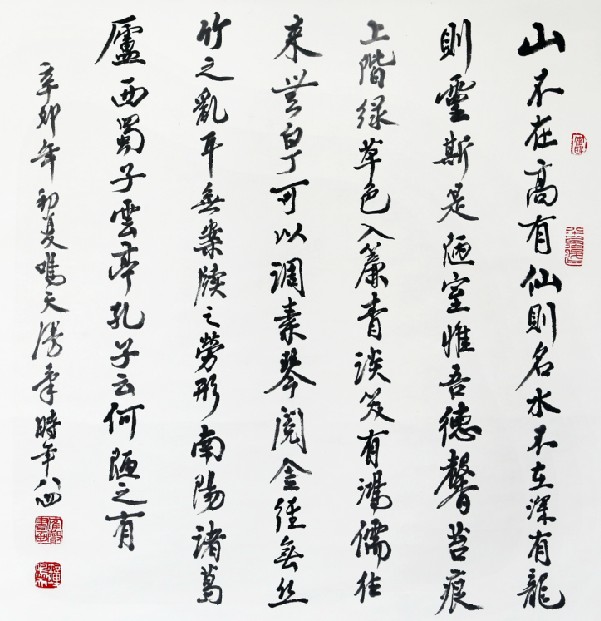 山不在高有仙則名水不在深有龍
則靈斯是陋室惟吾德馨苔痕
上階緑草色入簾青談笑有鴻儒往
来無白丁可以调素琴閲金經無丝
竹之亂耳無案牘之勞形南陽諸葛
廬西蜀子雲亭孔子云何陋之有
辛卯年初夏天時年